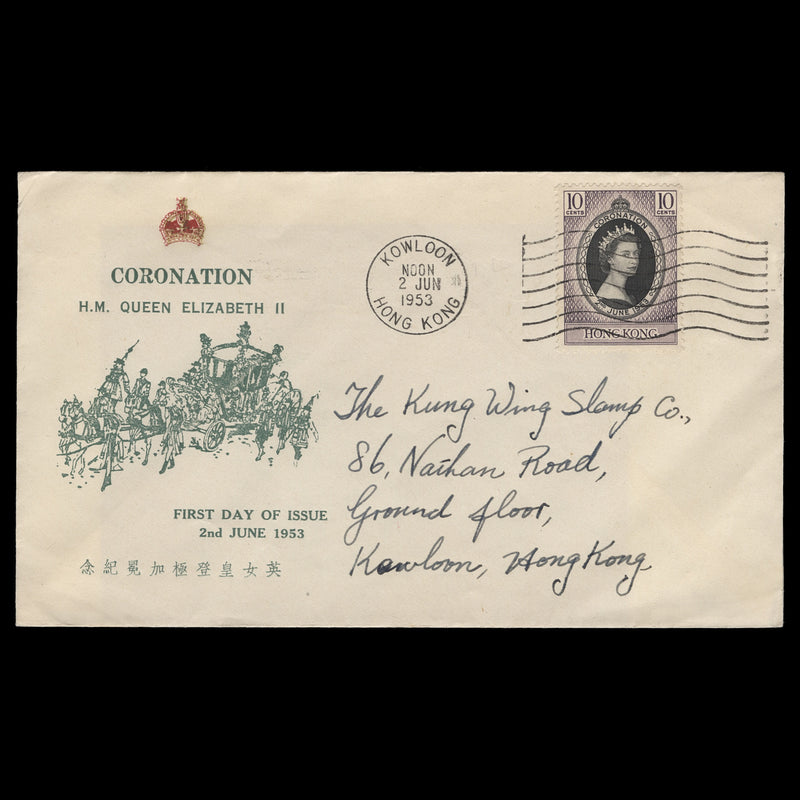 CORONATION
H.M. QUEEN ELIZABETH II
FIRST DAY OF ISSUE
2nd JUNE 1953
念紀冕加極登皇女英
KOWLOON
NOON
2 JUN
1953
HONG KONG
10 CENTS
10 CENTS
CORONATION
2ND JUNE 1953
HONG KONG
The Kung Wing Stamp Co.,
86, Nathan Road,
Ground floor,
Kowloon, Hong Kong